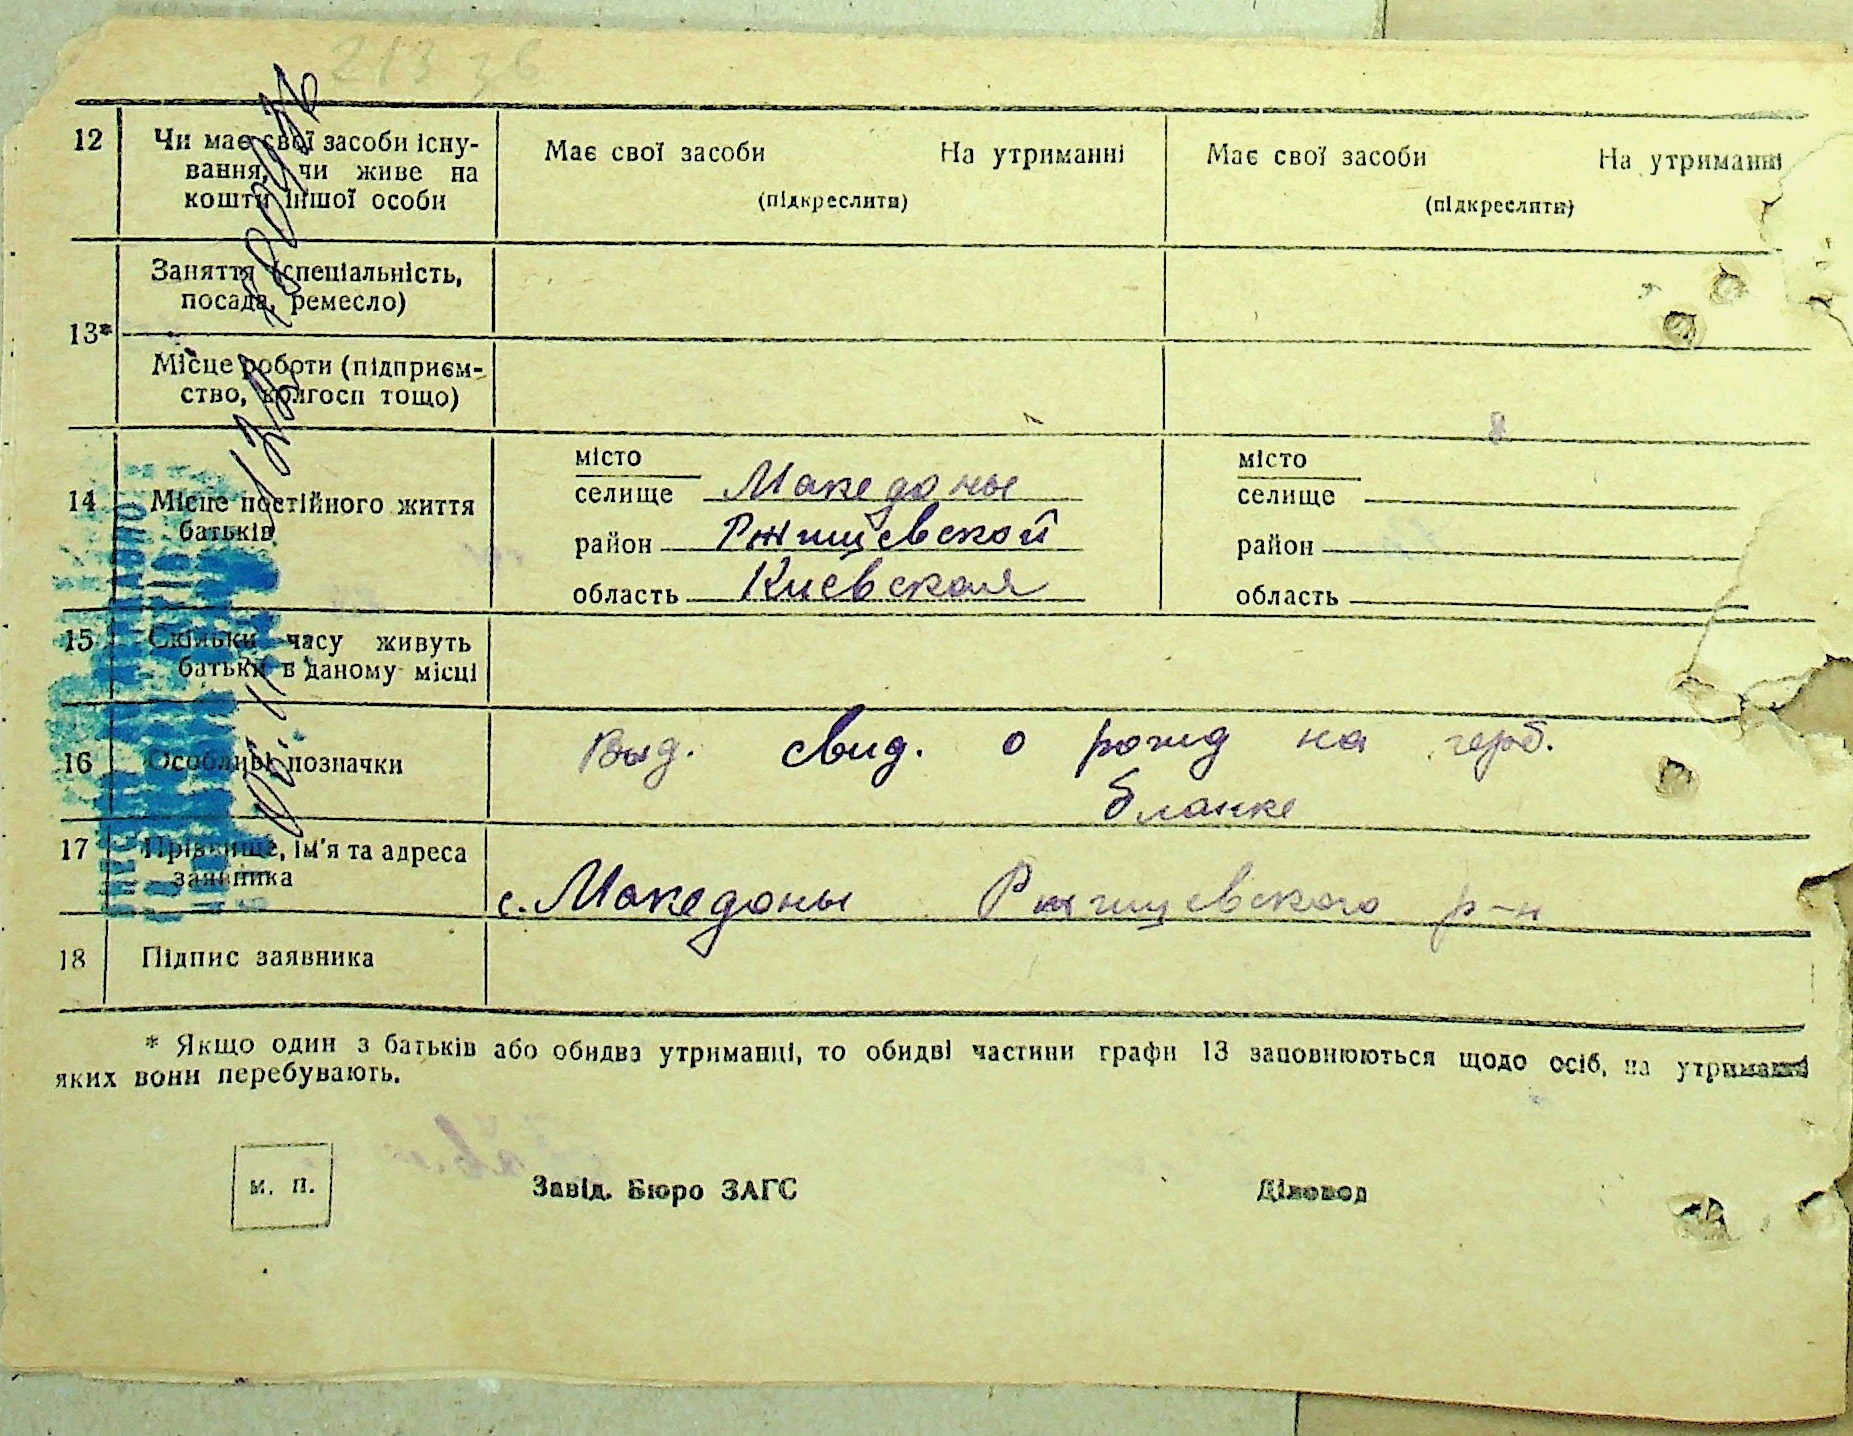 213 зб
12 Чи має свої засоби існу-
вання, чи живе на
кошти іншої особи
Має свої засоби На утриманні
(підкреслити)
Має свої засоби На утриманні
(підкреслити)
13*
Заняття (спеціальність,
посада, ремесло)
Місце роботи (підприєм-
ство, колгосп тощо)
14 Місце постійного життя
батьків
місто
селище Македоны
район Ржищевской
область Киевская
місто
селище
район
область
15 Скільки часу живуть
батьки в даному місці
16 Особливі позначки
Выд. свид. о рожд на герб.
бланке
17 Прізвище, ім'я та адреса
заявника
с. Македоны Ржищевского р-н
18 Підпис заявника
* Якщо один з батьків або обидва утриманці, то обидві частини графи 13 заповнюються щодо осіб, на утриманні
яких вони перебувають.
м. п.
Завід. Бюро ЗАГС
Діловод